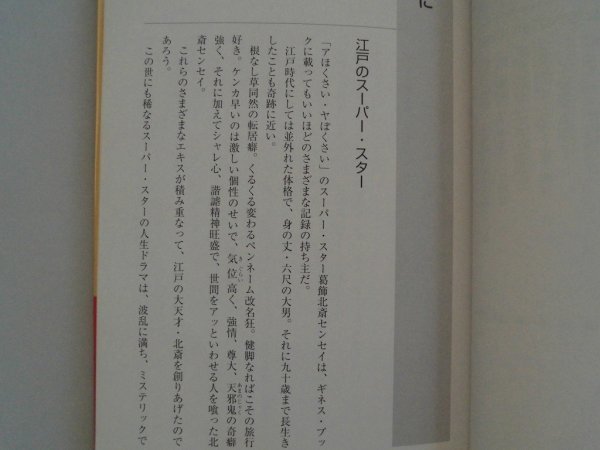 に
江戸のスーパー・スター
「アホくさい・ヤぼくさい」のスーパー・スター葛飾北斎センセイは、ギネス・ブッ
クに載ってもいいほどのさまざまな記録の持ち主だ。
江戸時代にしては並外れた体格で、身の丈・六尺の大男。それに九十歳まで長生き
したことも奇跡に近い。
根なし草同然の転居癖。くるくる変わるペンネーム改名狂。健脚なればこその旅行
好き。ケンカ早いのは激しい個性のせいで、気位高く、強情、尊大、天邪鬼の奇癖
強く、それに加えてシャレ心、諧謔精神旺盛で、世間をアッといわせる人を喰った北
斎センセイ。
これらのさまざまなエキスが積み重なって、江戸の大天才・北斎を創りあげたので
あろう。
この世にも稀なるスーパー・スターの人生ドラマは、波乱に満ち、ミステリックで